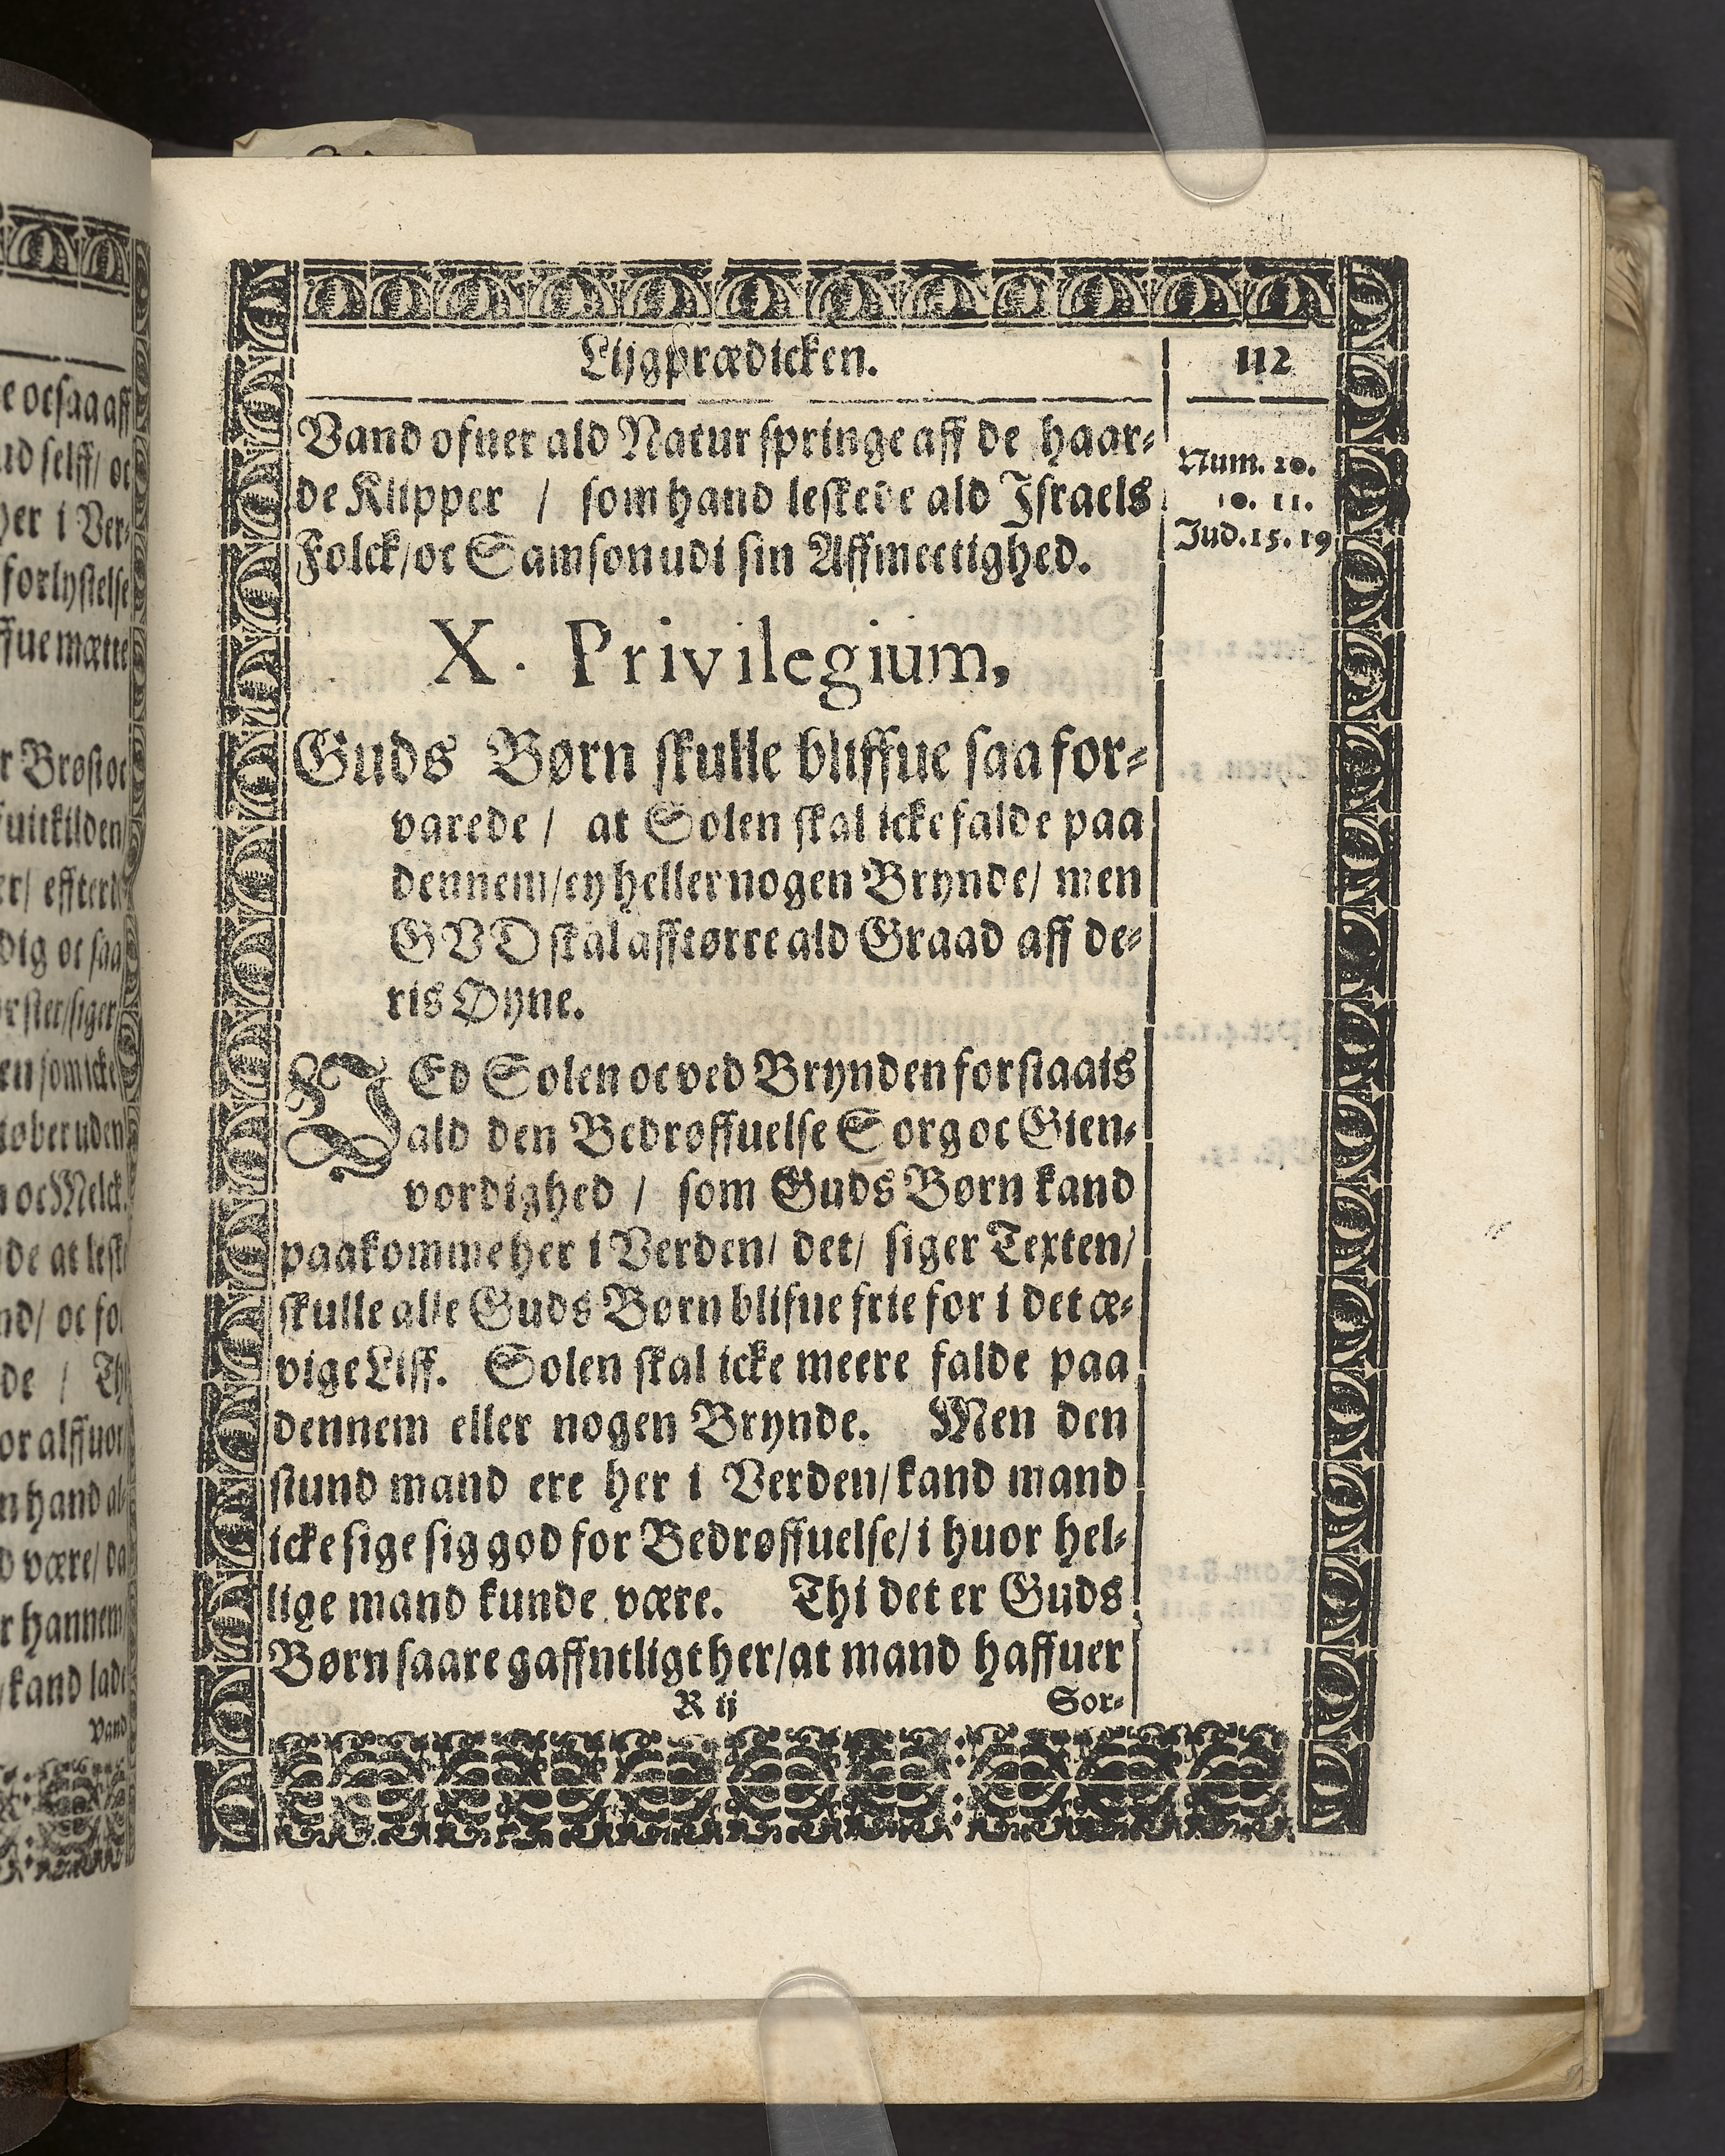 Lijgprædicken.
112
Vand ofuer ald Natur springe aff de haar-
de Klipper / som hand leskede ald Israels
Folck/oc Samson udi sin Affmectighed.
Num. 20.
10. 11.
Jud. 15. 19
X. Privilegium,
Guds Børn skulle bliffue saa for-
varede / at Solen skal icke falde paa
dennem/ey heller nogen Brynde/ men
GVD skal afftørre ald Graad aff de-
ris Øyne.
VEd Solen oc ved Brynden forstaais
ald den Bedrøffuelse Sorg oc Gien-
vordighed / som Guds Børn kand
paakomme her i Verden/ det/ siger Texten/
skulle alle Guds Børn blifue frie for i det æ-
vige Liff. Solen skal icke meere falde paa
dennem eller nogen Brynde. Men den
stund mand ere her i Verden/kand mand
icke sige sig god for Bedrøffuelse/ i huor hel-
lige mand kunde være. Thi det er Guds
Børn saare gaffntligt her/at mand haffuer
R ij
Sor-